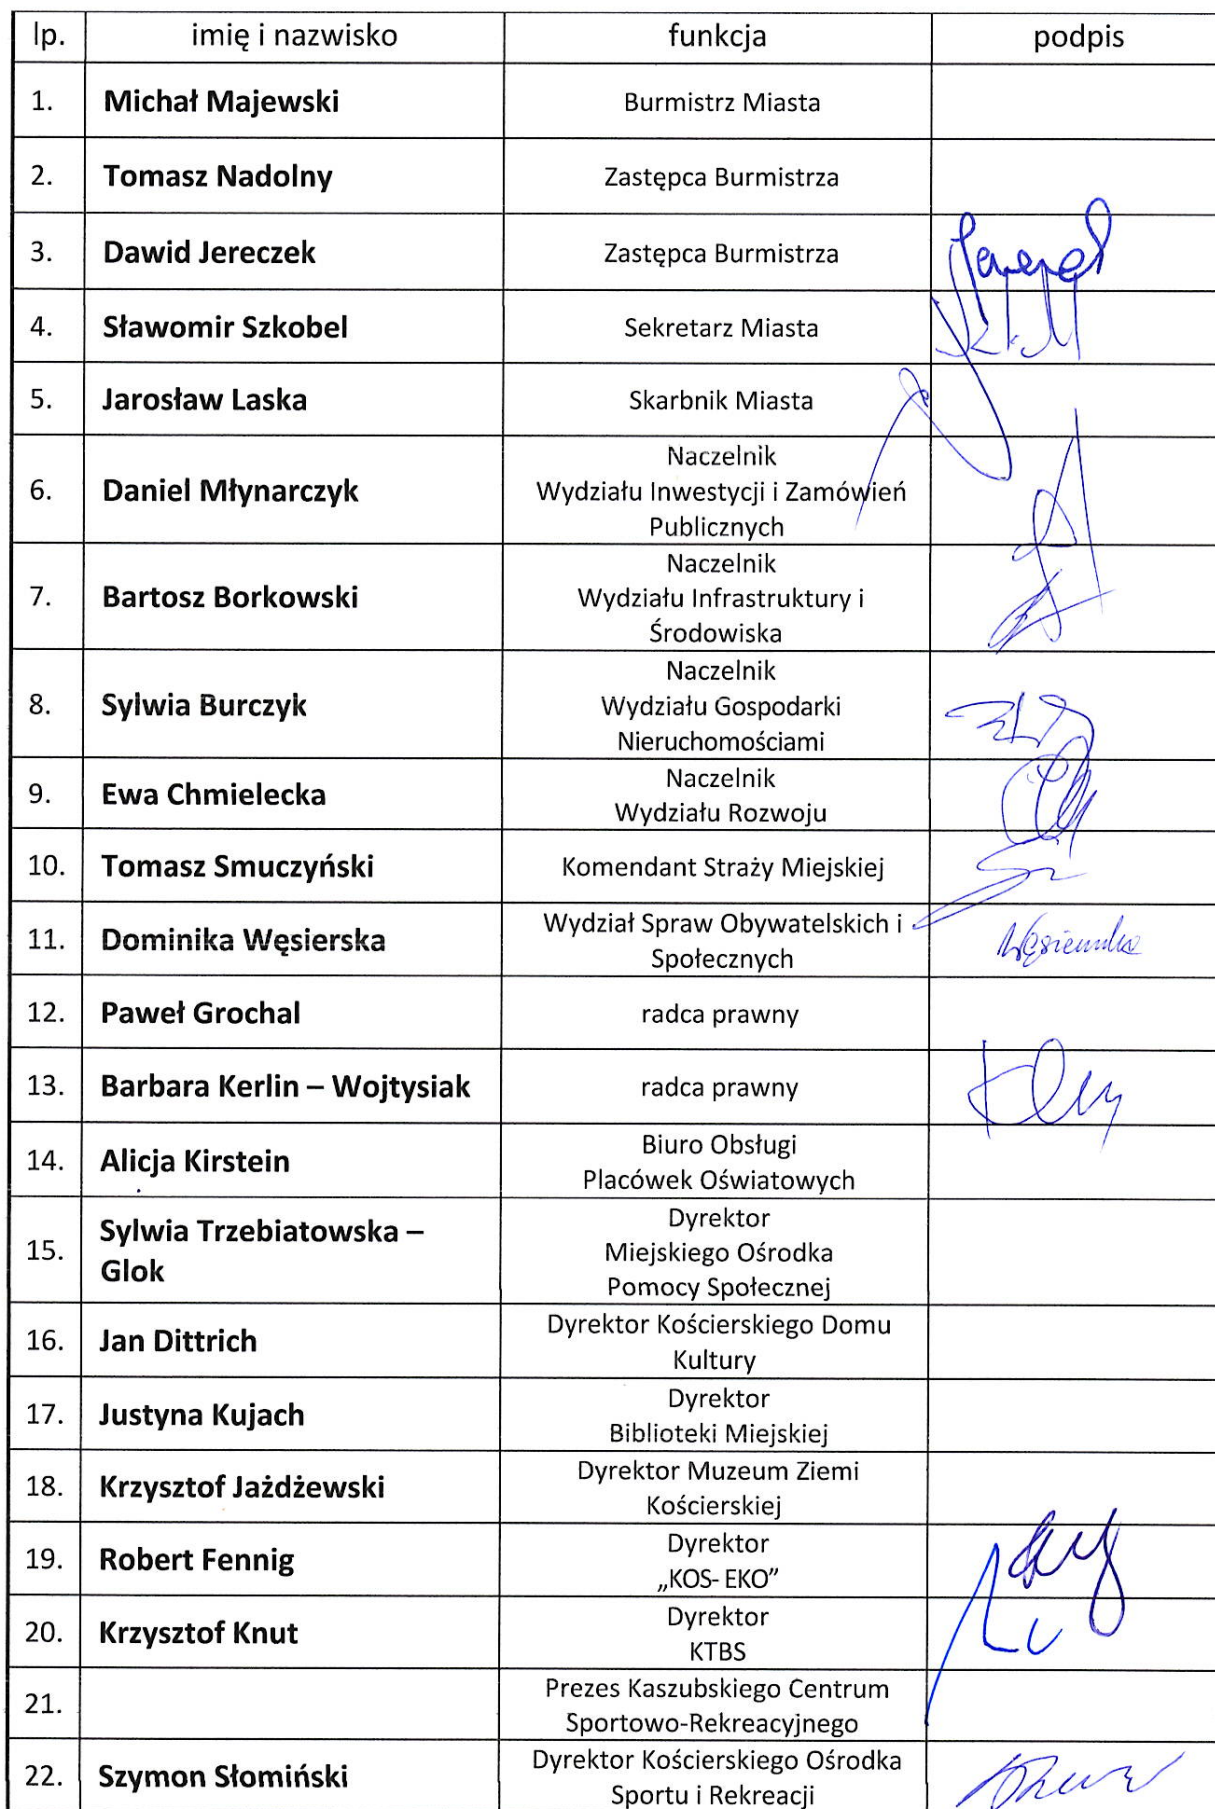 lp. imię i nazwisko funkcja podpis
1. Michał Majewski Burmistrz Miasta
2. Tomasz Nadolny Zastępca Burmistrza
3. Dawid Jereczek Zastępca Burmistrza
4. Sławomir Szkobel Sekretarz Miasta
5. Jarosław Laska Skarbnik Miasta
6. Daniel Młynarczyk Naczelnik
Wydziału Inwestycji i Zamówień
Publicznych
7. Bartosz Borkowski Naczelnik
Wydziału Infrastruktury i
Środowiska
8. Sylwia Burczyk Naczelnik
Wydziału Gospodarki
Nieruchomościami
9. Ewa Chmielecka Naczelnik
Wydziału Rozwoju
10. Tomasz Smuczyński Komendant Straży Miejskiej
11. Dominika Węsierska Wydział Spraw Obywatelskich i
Społecznych
12. Paweł Grochal radca prawny
13. Barbara Kerlin – Wojtysiak radca prawny
14. Alicja Kirstein Biuro Obsługi
Placówek Oświatowych
15. Sylwia Trzebiatowska –
Glok
Dyrektor
Miejskiego Ośrodka
Pomocy Społecznej
16. Jan Dittrich Dyrektor Kościerskiego Domu
Kultury
17. Justyna Kujach Dyrektor
Biblioteki Miejskiej
18. Krzysztof Jażdżewski Dyrektor Muzeum Ziemi
Kościerskiej
19. Robert Fennig Dyrektor
„KOS- EKO”
20. Krzysztof Knut Dyrektor
KTBS
21. Prezes Kaszubskiego Centrum
Sportowo-Rekreacyjnego
22. Szymon Słomiński Dyrektor Kościerskiego Ośrodka
Sportu i Rekreacji